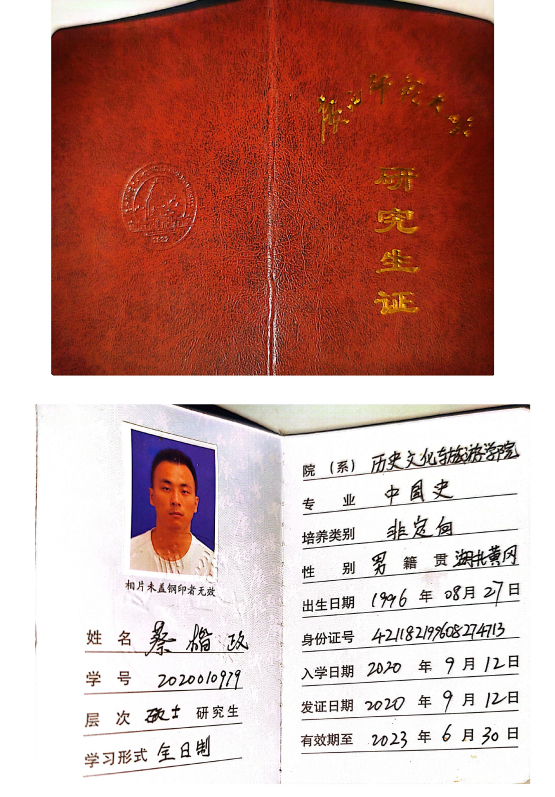 陕西师范大学
研究生证
相片未盖钢印者无效
姓 名 蔡楷政
学 号 2020010979
层 次 硕士 研究生
学习形式 全日制
院 (系) 历史文化与旅游学院
专 业 中国史
培养类别 非定向
性 别 男 籍 贯 湖北黄冈
出生日期 1996 年 08 月 27 日
身份证号 421182199608274713
入学日期 2020 年 9 月 12 日
发证日期 2020 年 9 月 12 日
有效期至 2023 年 6 月 30 日